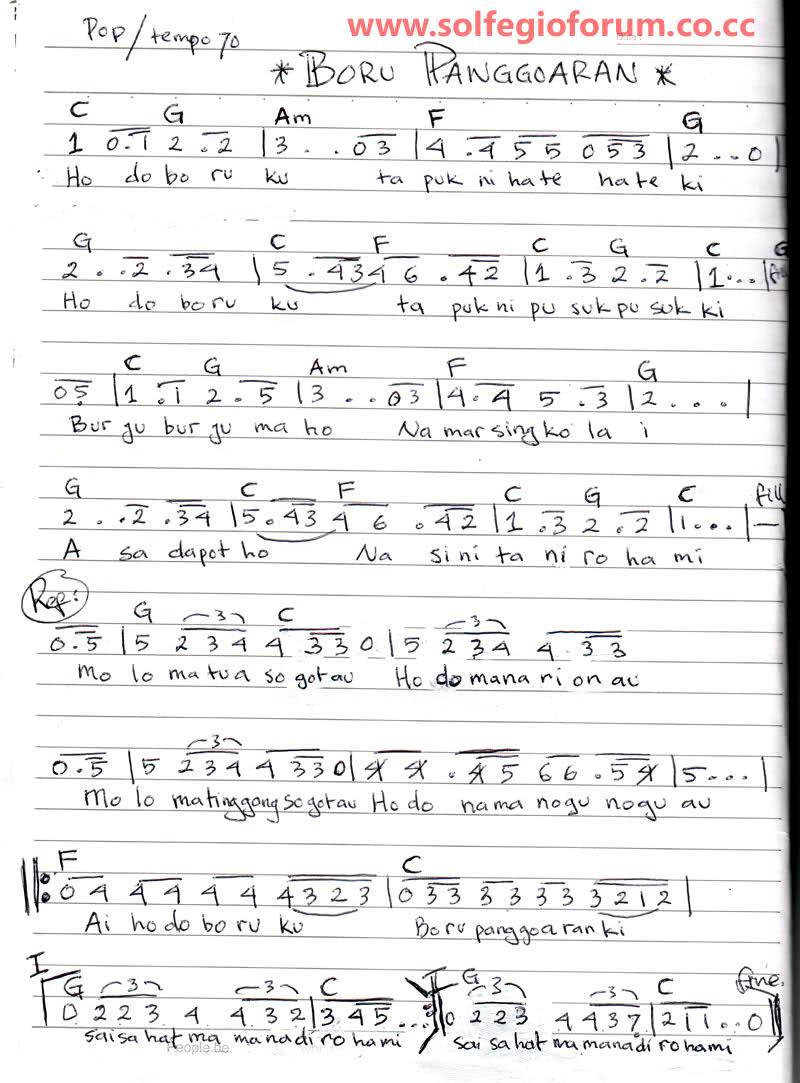 www.solfegioforum.co.cc
Pop/tempo 70
* BORU PANGGOARAN *
C G Am F G
1 0.1 2 .2 |3 . .03 |4 .4 55 053 |2 . . 0 |
Ho do bo ru ku ta puk ni hate hate ki
G C F C G C G
2 . .2 .34 |5 .43 4 6 .42 |1 .3 2 .2 |1 . . . |
Ho do bo ru ku ta puk ni pu suk pu suk ki
C G Am F G
05 |1 .1 2 .5 |3 . .03 |4 .4 5 .3 |2 . . . |
Bur gu bur gu ma ho Na mar sing ko la i
G C F C G C fill
2 . .2 .34 |5 .43 4 6 .42 |1 .3 2 .2 |1 . . . |—|
A sa dapot ho Na si ni ta ni ro ha mi
Ref:
G 3 C 3
0.5 |5 234 4 33 0 |5 234 4 .33
Mo lo ma tua so gotau Ho do mana ri on au
3
0.5 |5 234 4 33 0 |4 4 .45 66 .54 |5 . . . |
Mo lo matinggang so gotau Ho do nama nogu nogu au
F C
||: 04 44 44 4323 |033 33 33 3212 |
Ai ho do bo ru ku Boru panggoaran ki
I G 3 3 C II G 3 3 C fine
0 223 4 432 |345 . . . :|| 0 223 4 437 |211 . . 0 ||
sai sa hat ma mana di ro hami sai sa hat ma mana di ro hami